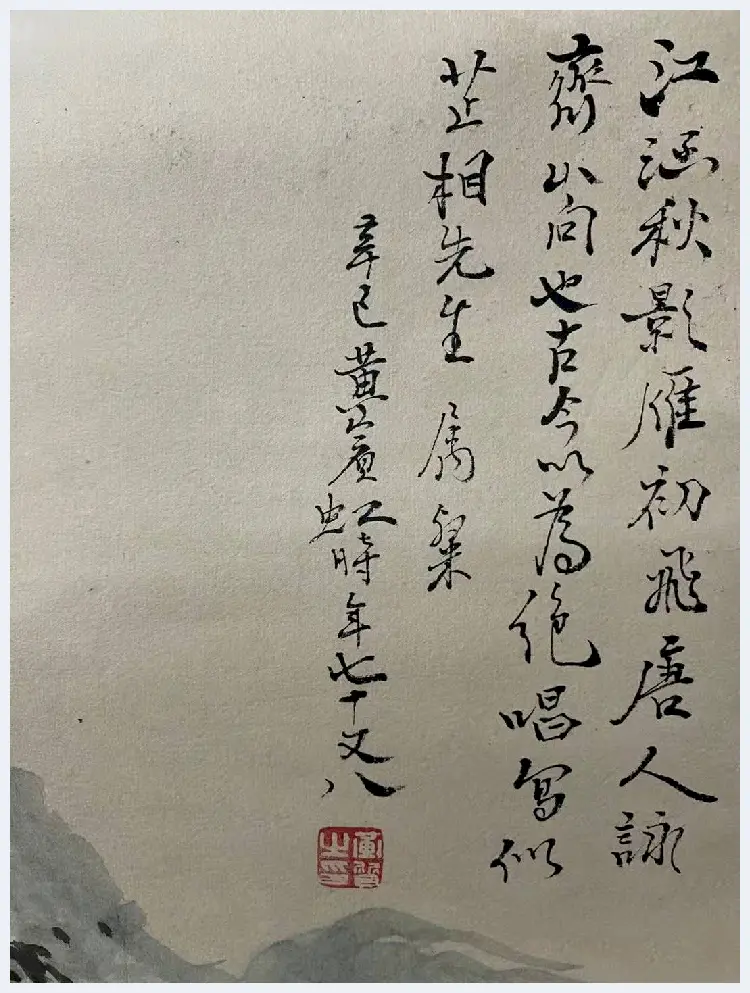 江涵秋影雁初飛唐人詠
齊山句也古今以為絕唱寫似
芷相先生 屬粲
辛巳黃賓虹時年七十又八
黃質之印